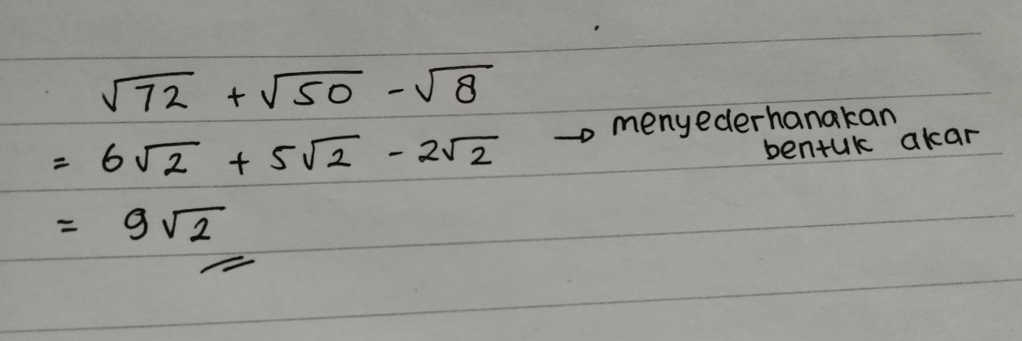 √72 + √50 - √8
= 6√2 + 5√2 - 2√2 → menyederhanakan
bentuk akar
= 9√2